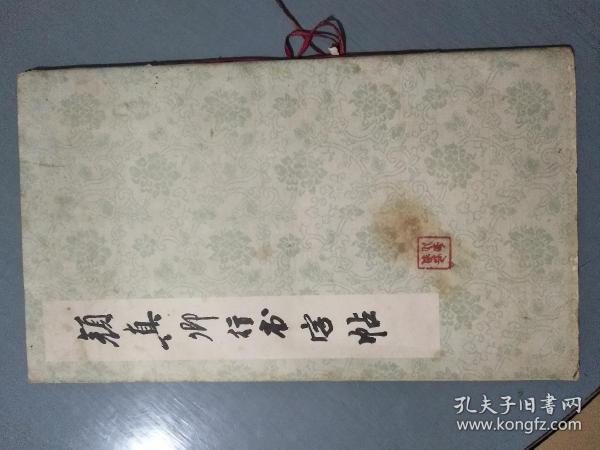 颜真卿行书字帖
孔夫子旧書网
www.kongfz.com